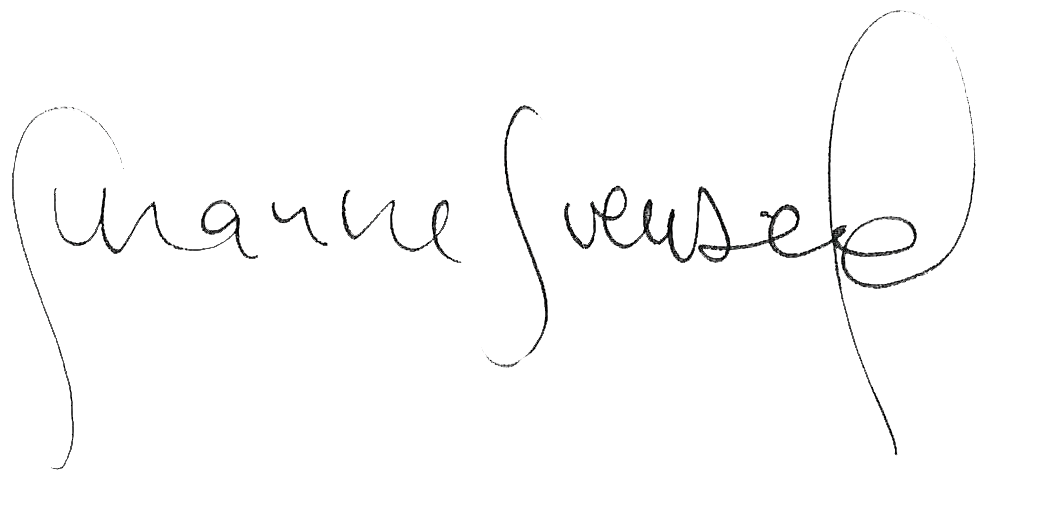 Susanne Svensson